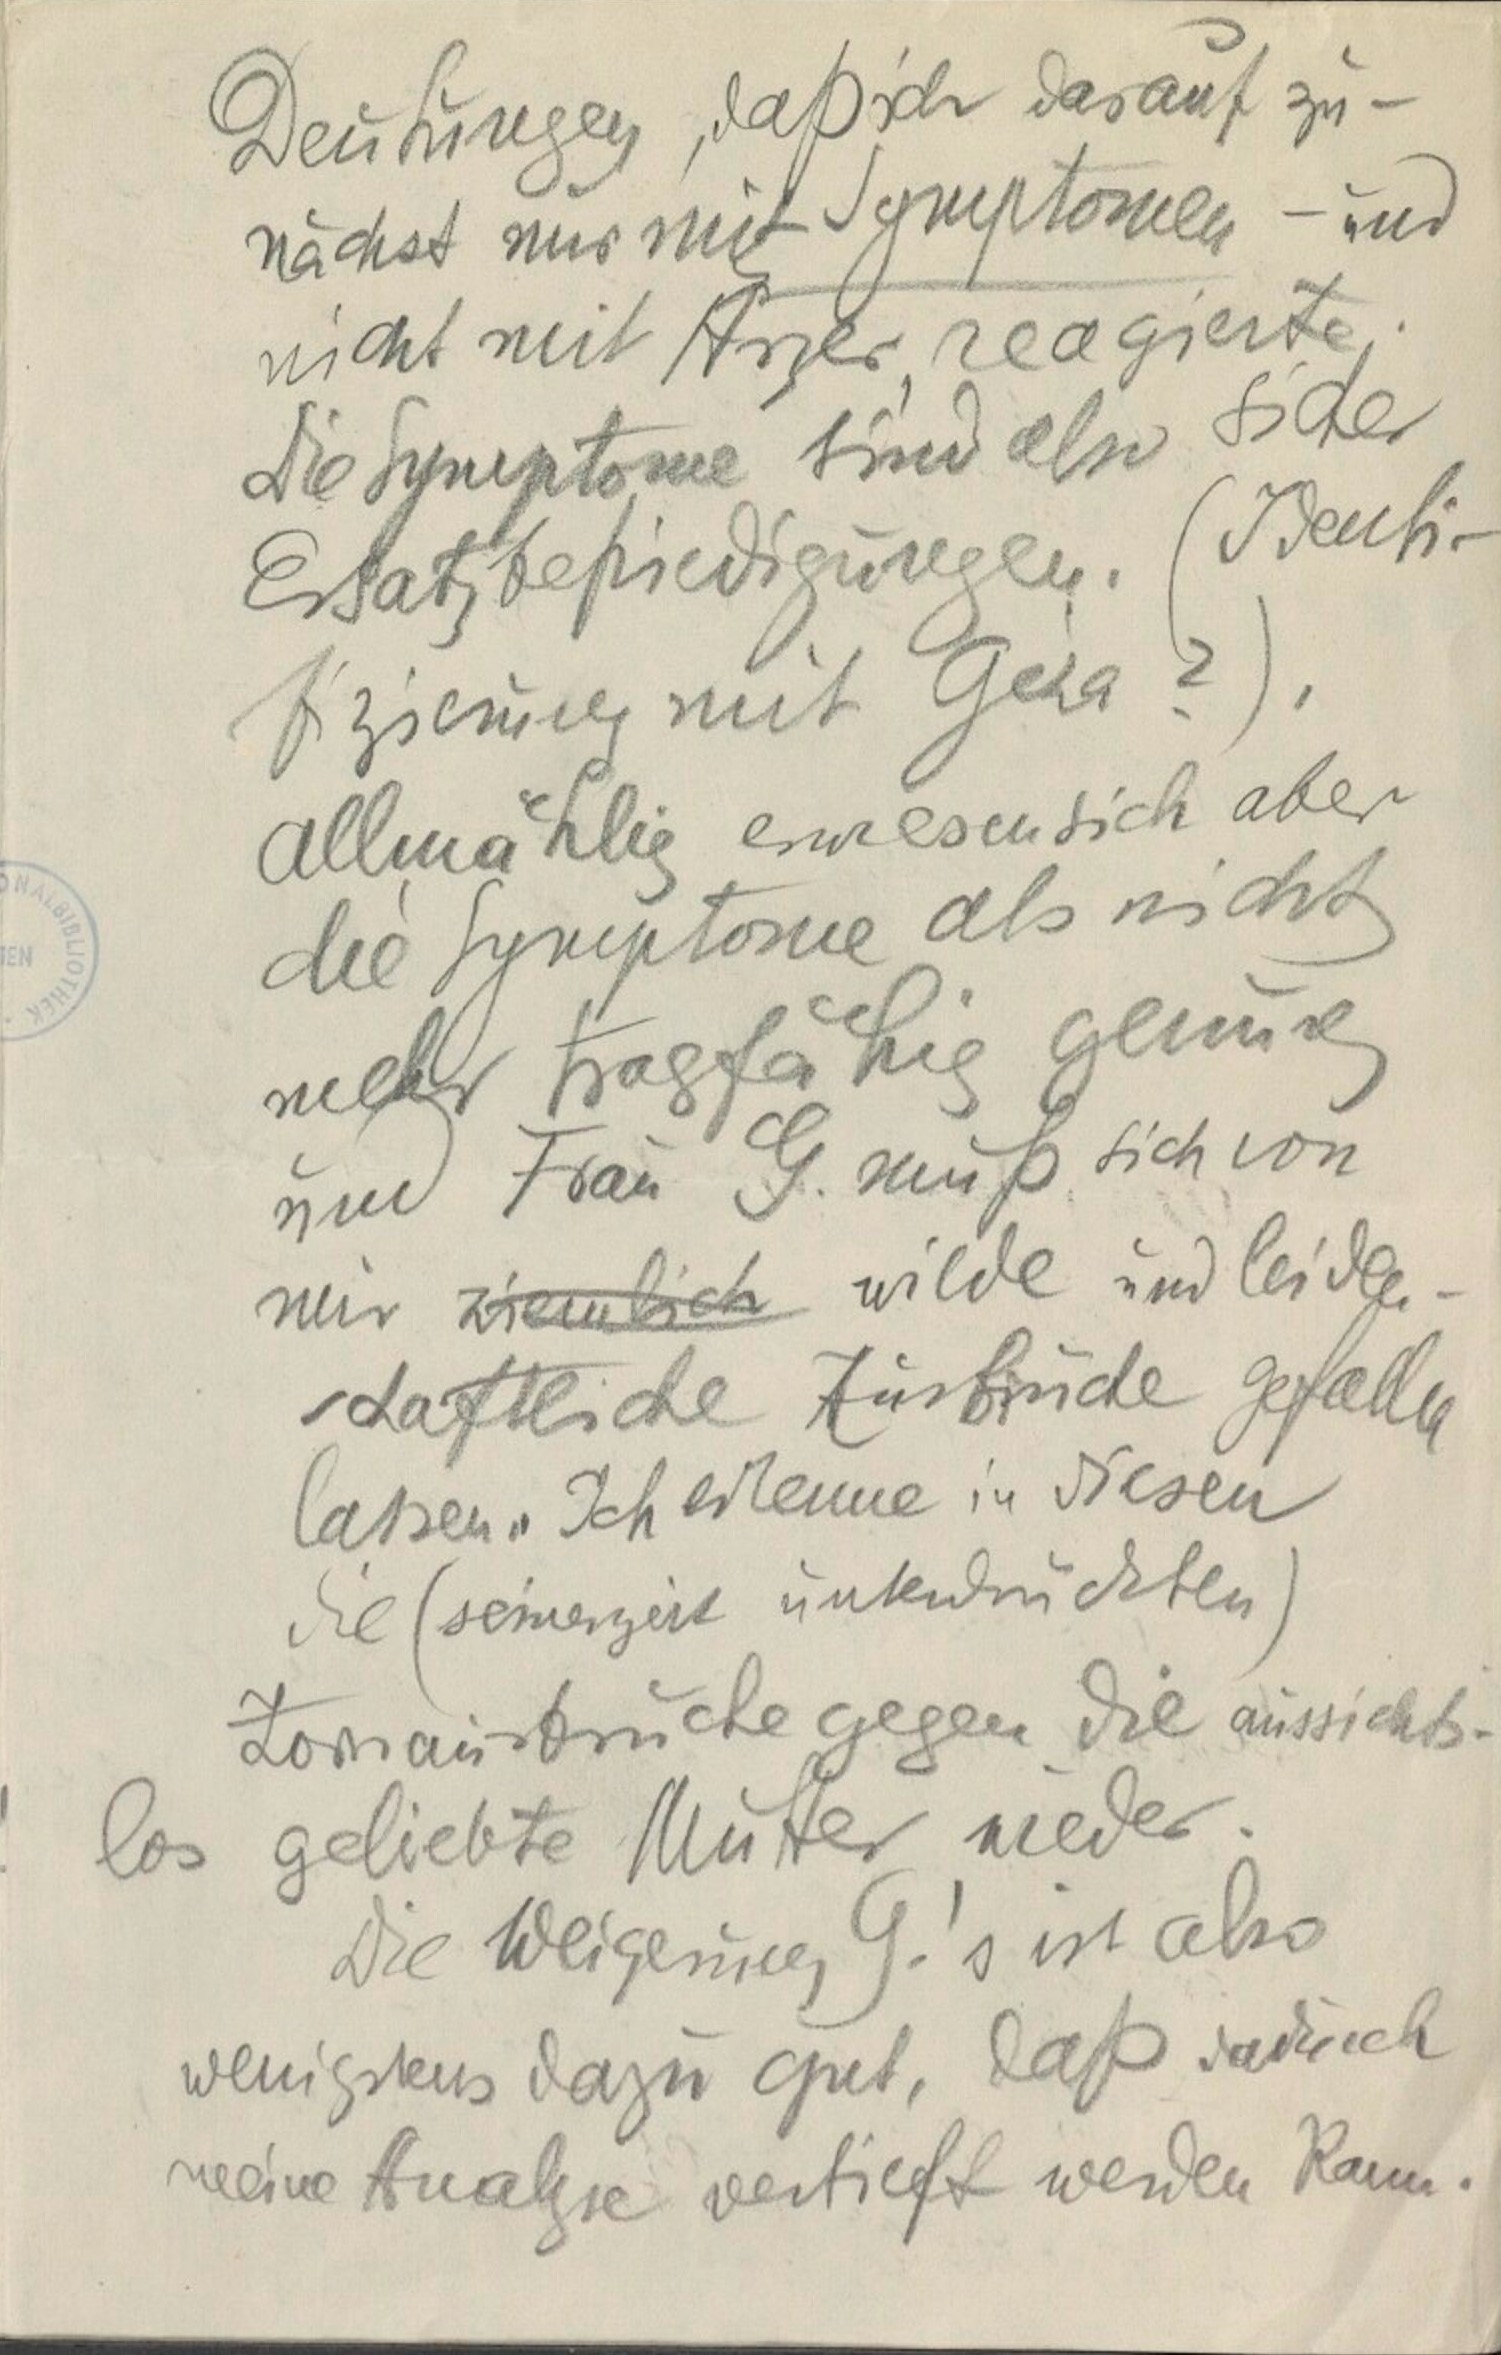 Deutungen, daß ich darauf zu-
nächst nur mit Symptomen - und
nicht mit Ärger, reagierte.
Die Symptome sind also sicher
Ersatzbefriedigungen. (Identi-
fizierung mit Géza?).
Allmählig erwiesen sich aber
die Symptome als nicht
mehr tragfähig genug
und Frau G. muß sich von
mir ziemlich wilde und leiden-
schaftliche Ausbrüche gefallen
lassen. Ich erkenne in diesen
die (seinerzeit unterdrückten)
Zornausbrüche gegen die aussichts-
los geliebte Mutter wieder.
Die Weigerung G.'s ist also
wenigstens dazu gut, daß dadurch
meine Analyse vertieft werden kann.
ONALBIBLIOTHEK
IEN